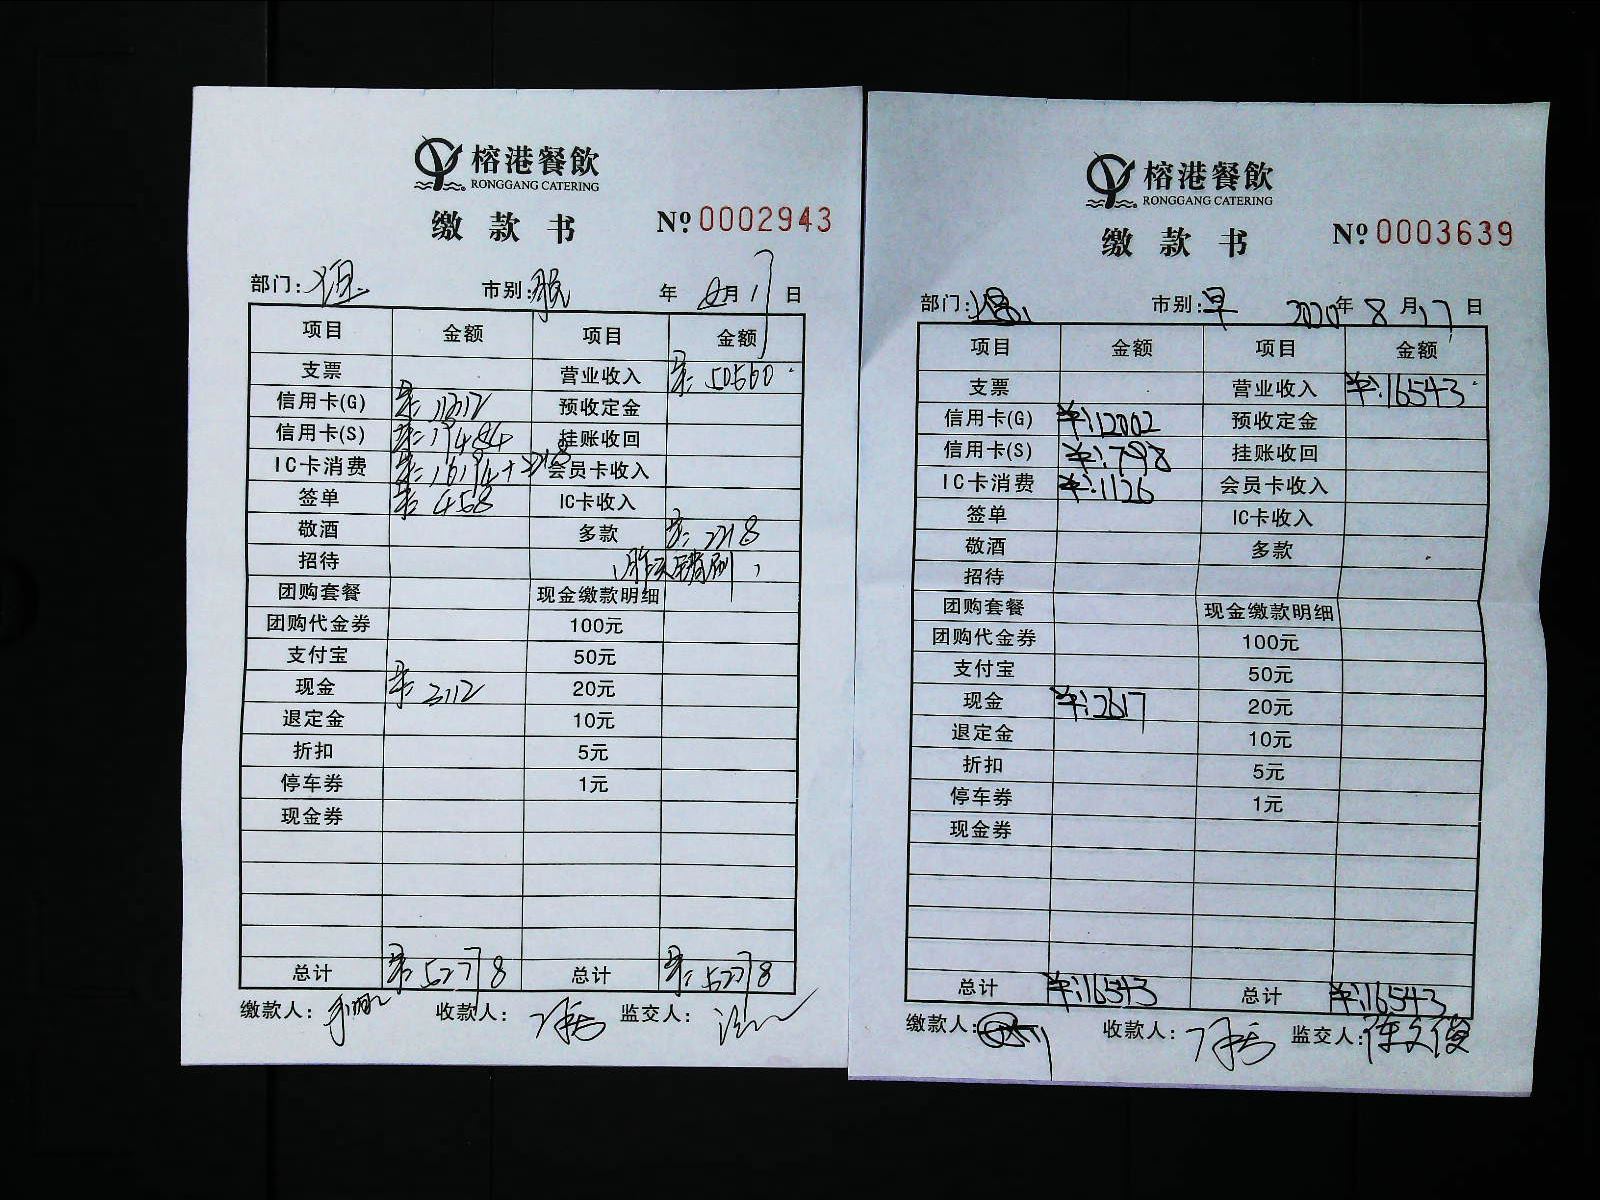 榕港餐飲
RONGGANG CATERING
缴款书 № 0002943
部门: 市别: 年 8月17日
项目 金额 项目 金额
支票 营业收入 50560
信用卡(G) 预收定金
信用卡(S) 17484 挂账收回
IC卡消费 会员卡收入
签单 458 IC卡收入
敬酒 多款 2218
招待
团购套餐 现金缴款明细
团购代金券 100元
支付宝 50元
现金 20元
退定金 10元
折扣 5元
停车券 1元
现金券
总计 52778 总计 52778
缴款人: 收款人: 监交人:
榕港餐飲
RONGGANG CATERING
缴款书 № 0003639
部门: 市别:早 2020年8月17日
项目 金额 项目 金额
支票 营业收入 ¥:16543
信用卡(G) ¥:12002 预收定金
信用卡(S) ¥:798 挂账收回
IC卡消费 ¥:1126 会员卡收入
签单 IC卡收入
敬酒 多款
招待
团购套餐 现金缴款明细
团购代金券 100元
支付宝 50元
现金 ¥:2617 20元
退定金 10元
折扣 5元
停车券 1元
现金券
总计 ¥:16543 总计 ¥:16543
缴款人: 收款人: 监交人:陈文俊